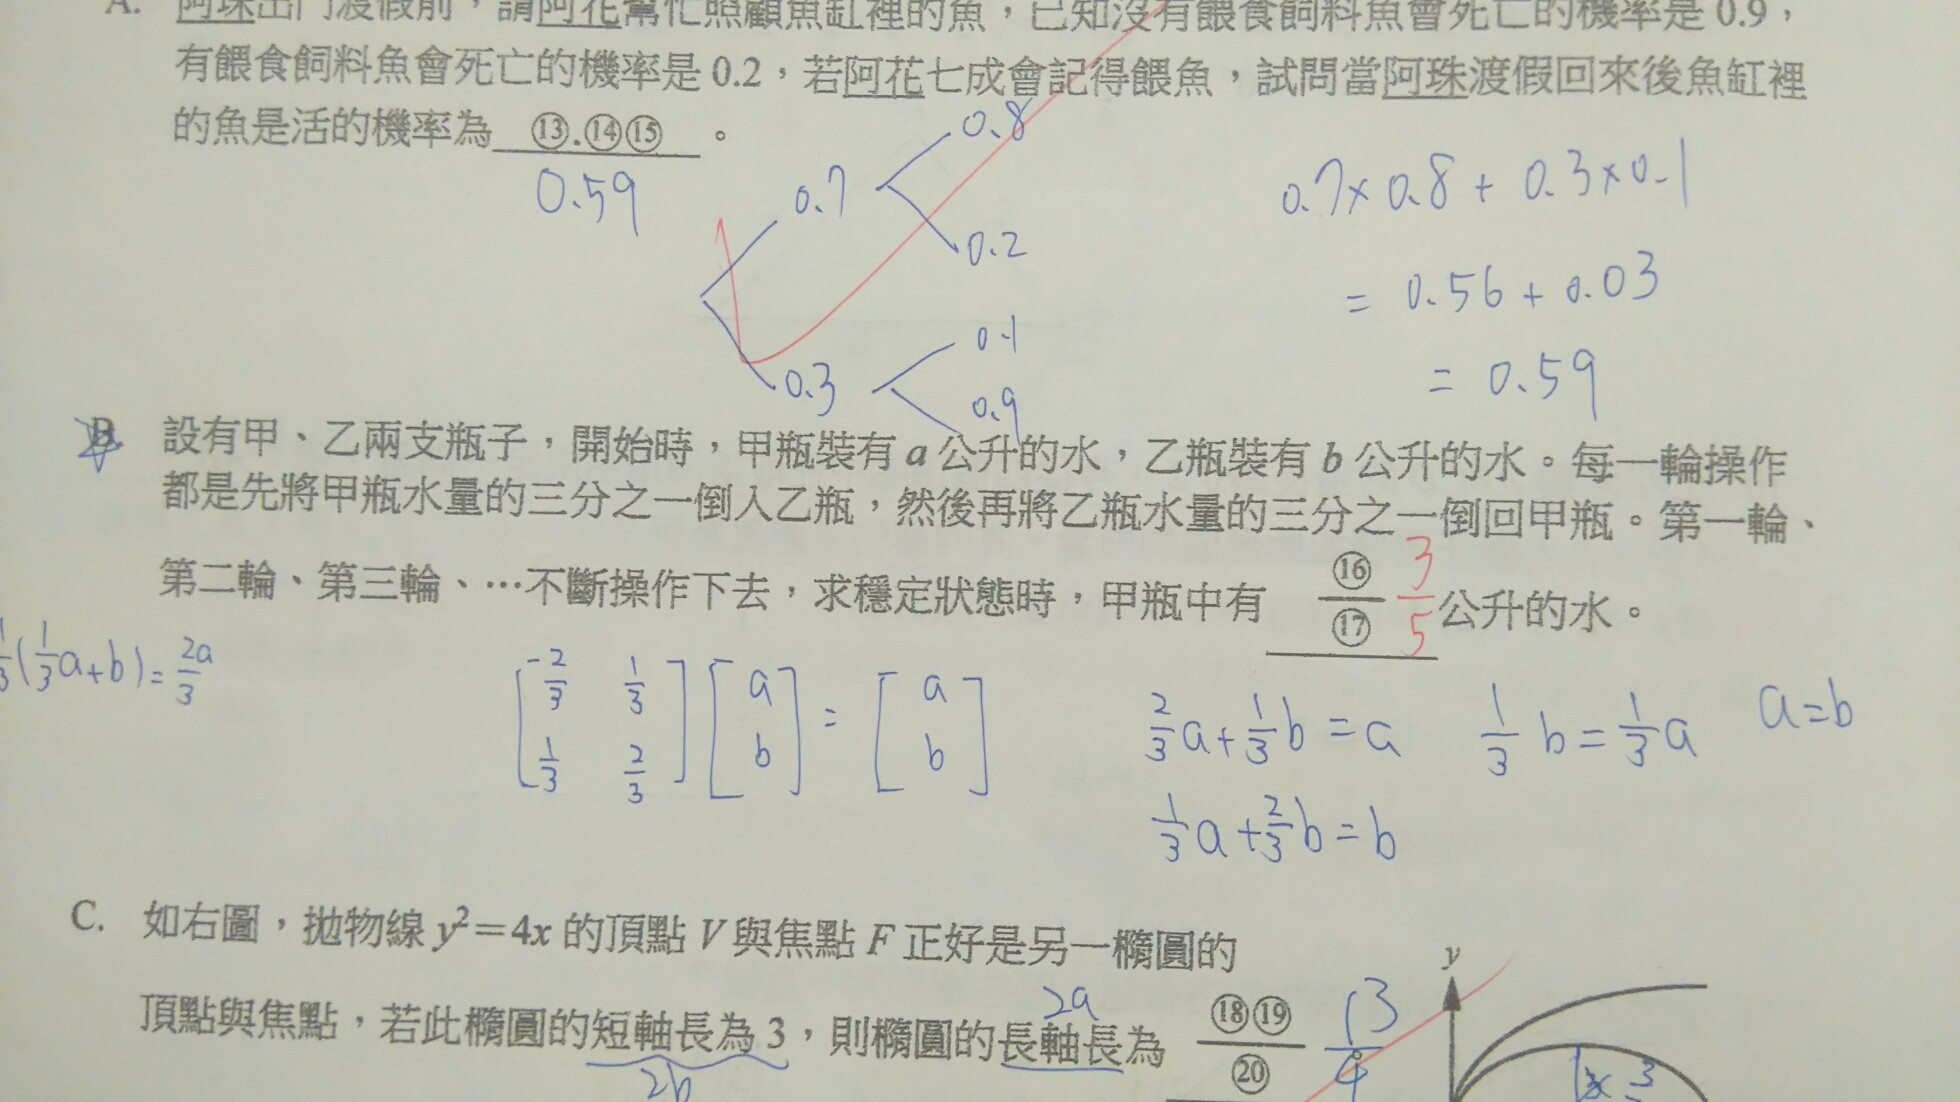 A. 阿珠出門渡假前，請阿花幫忙照顧魚缸裡的魚，已知沒有餵食飼料魚會死亡的機率是 0.9，
有餵食飼料魚會死亡的機率是 0.2，若阿花七成會記得餵魚，試問當阿珠渡假回來後魚缸裡
的魚是活的機率為 ⑬.⑭⑮ 。
0.59
0.7
0.8
0.2
0.3
0.1
0.9
0.7×0.8+0.3×0.1
=0.56+0.03
=0.59
B. 設有甲、乙兩支瓶子，開始時，甲瓶裝有 a 公升的水，乙瓶裝有 b 公升的水。每一輪操作
都是先將甲瓶水量的三分之一倒入乙瓶，然後再將乙瓶水量的三分之一倒回甲瓶。第一輪、
第二輪、第三輪、…不斷操作下去，求穩定狀態時，甲瓶中有 ⑯/⑰ 3/5 公升的水。
1/3(1/3a+b)=2a/3
[-2/3 1/3] [a] = [a]
[1/3 2/3] [b] [b]
2/3a+1/3b=a 1/3b=1/3a a=b
1/3a+2/3b=b
C. 如右圖，拋物線 y²=4x 的頂點 V 與焦點 F 正好是另一橢圓的
頂點與焦點，若此橢圓的短軸長為 3，則橢圓的長軸長為 ⑱⑲/⑳ 13/4
2a
2b
y
3